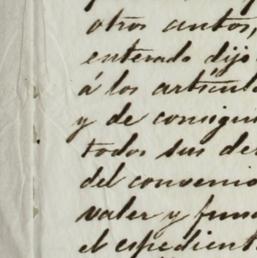 otros autos,
enterado dijo
á los artícul
y de consigui
todos sus de
del convenio
valer y fun
el espedient